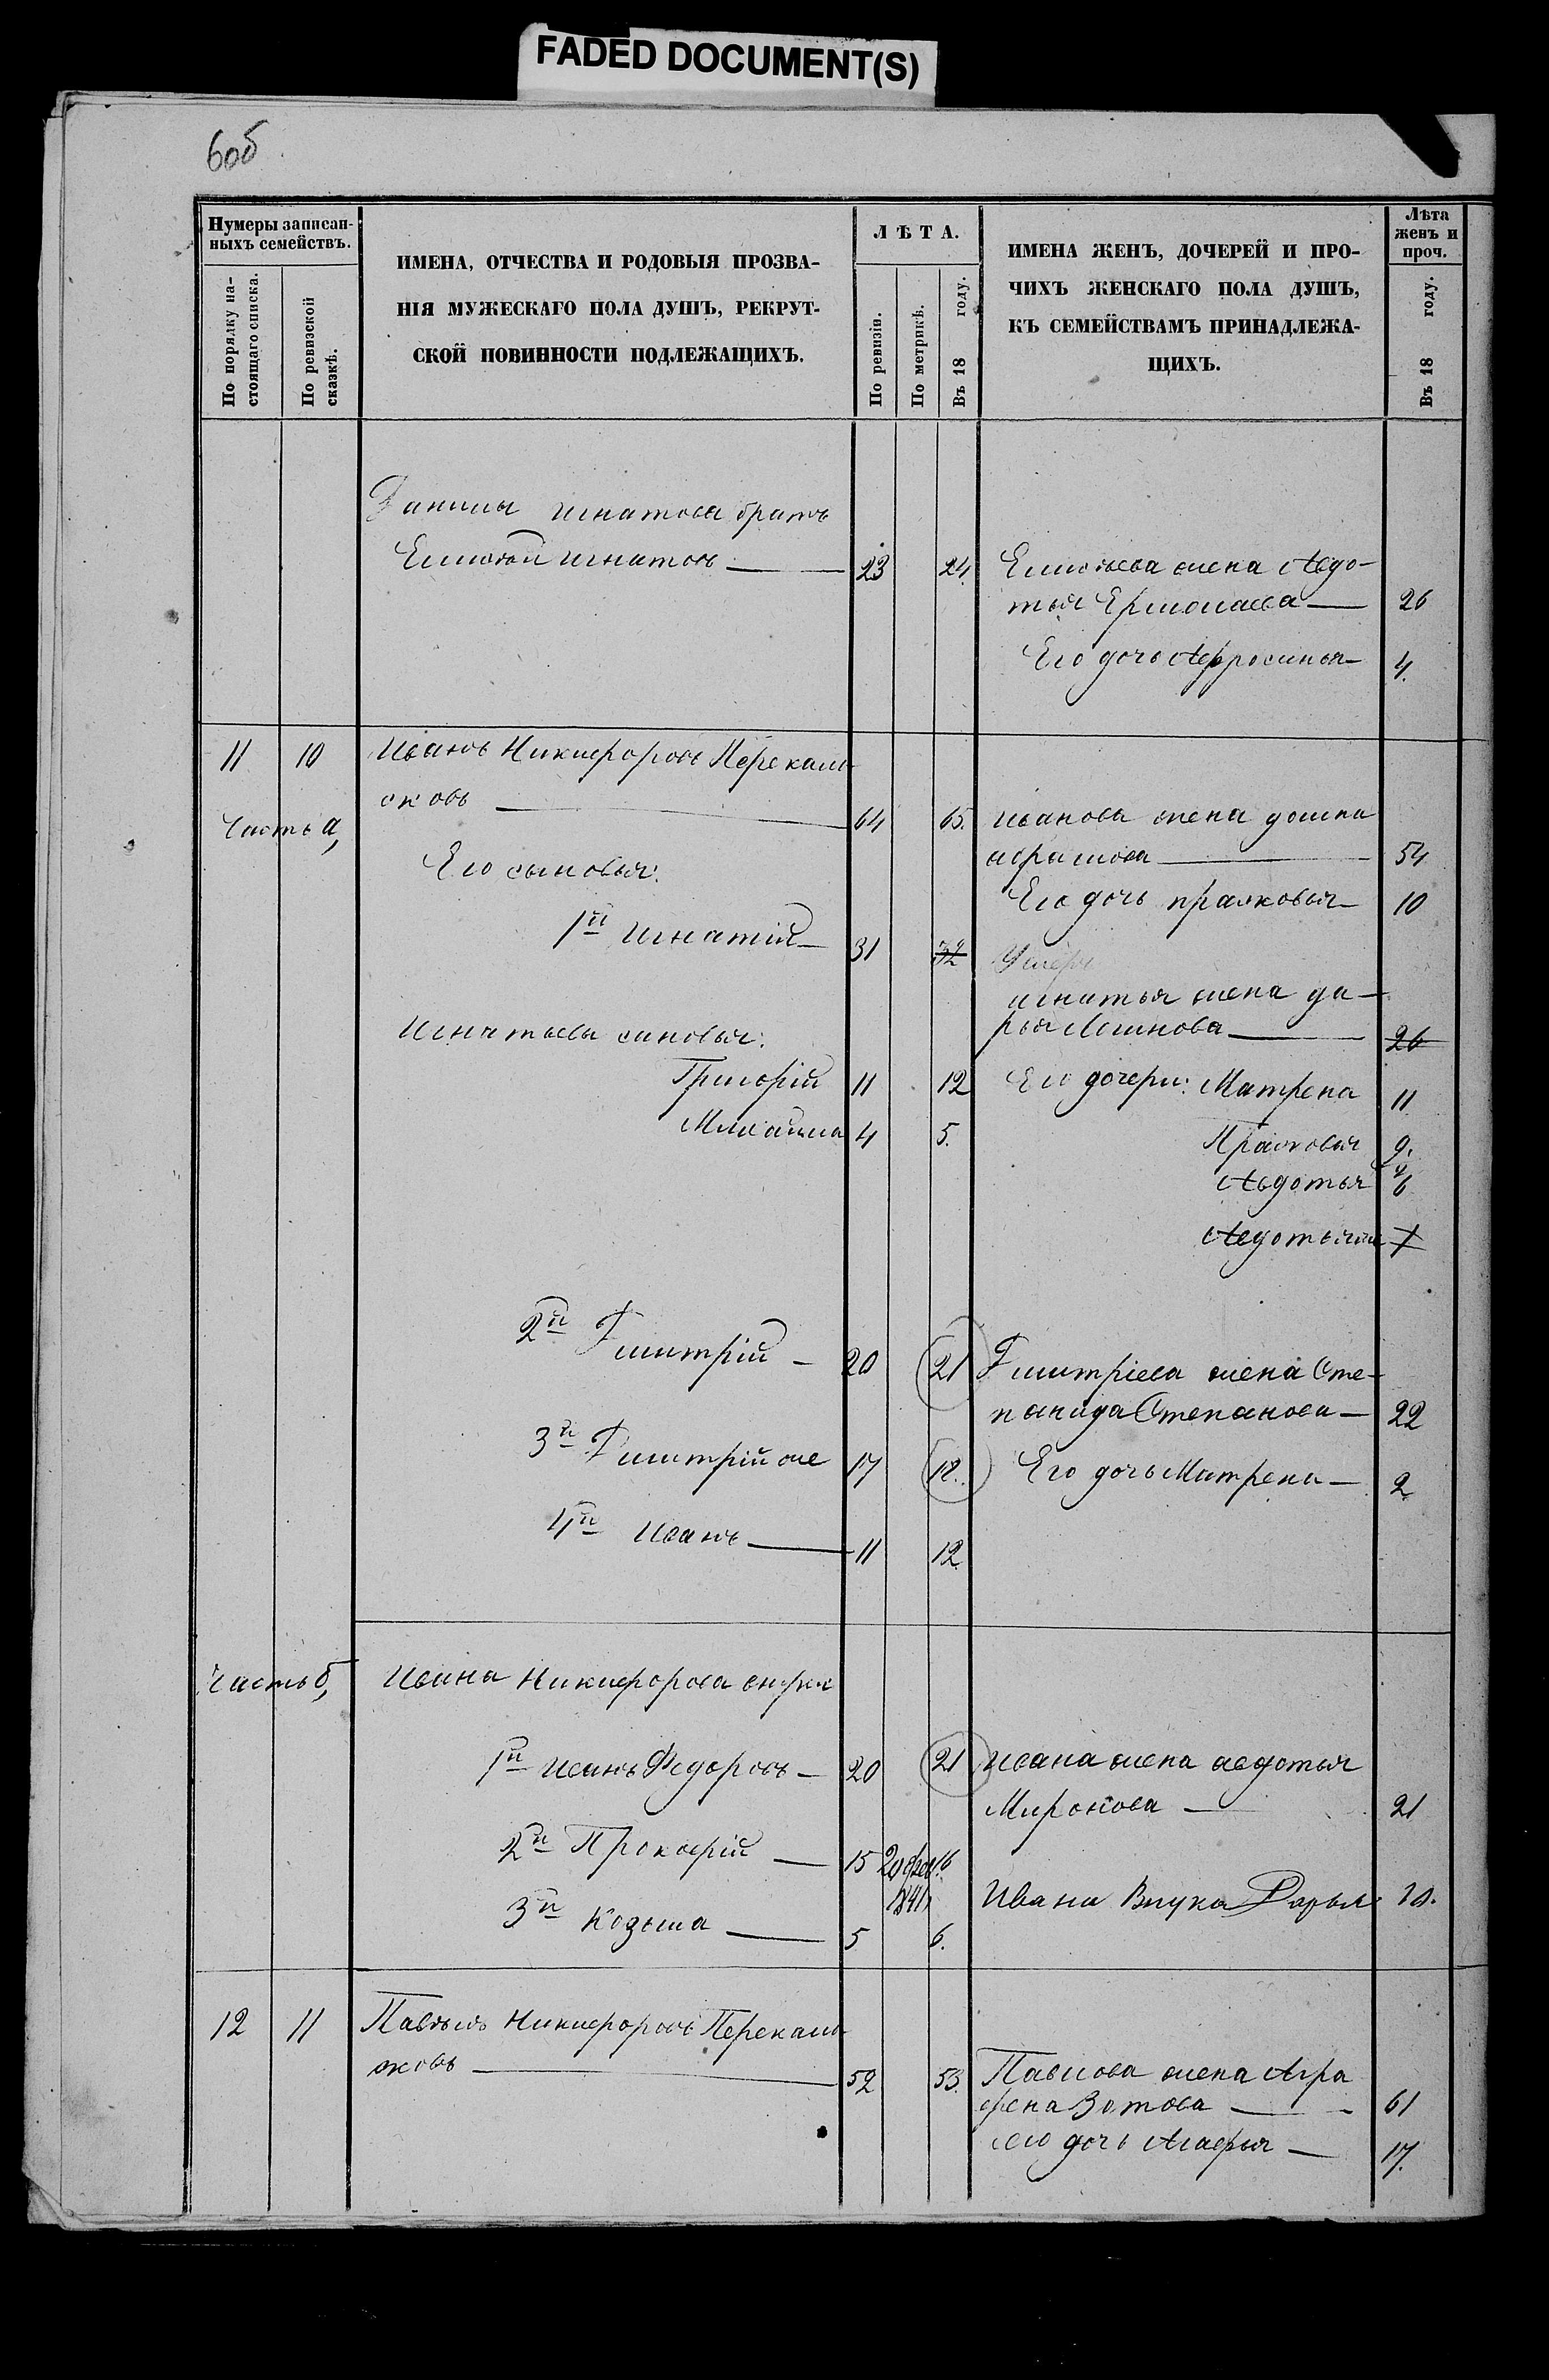 FADED DOCUMENT(S)
6об
Нумеры записан-
ныхъ семействъ.
По порядку на-
стоящаго списка.
По ревизской
сказкѣ.
ИМЕНА, ОТЧЕСТВА И РОДОВЫЯ ПРОЗВА-
НІЯ МУЖЕСКАГО ПОЛА ДУШЪ, РЕКРУТ-
СКОЙ ПОВИННОСТИ ПОДЛЕЖАЩИХЪ.
ЛѢТА.
По ревизіи.
По метрикѣ.
Въ 18 году.
ИМЕНА ЖЕНЪ, ДОЧЕРЕЙ И ПРО-
ЧИХЪ ЖЕНСКАГО ПОЛА ДУШЪ,
КЪ СЕМЕЙСТВАМЪ ПРИНАДЛЕЖА-
ЩИХЪ.
Лѣта
женъ и
проч.
Въ 18 году.
Данилы Игнатова братъ
Елисѣй Игнатовъ 23 24
Елисѣева жена Авдо-
тья Ермолаева 26
Его дочь Афросинья 4.
11 10 Иванъ Никифоровъ Перекаль-
сковъ 64 65.
Часть а,
Иванова жена домна
абрамова 54
Его сыновья:
Его дочь прасковья 10
1й Игнатій 31 32
Умеръ
игнатья жена да-
рья Логинова 26
Игнатьевы сыновья:
Григорій 11 12
Его дочери: Матрена 11
Михайла 4 5.
Прасковья 9.
Авдотья 6
Авдотья же
2й Дмитрій 20 21
Дмитріева жена Сте-
панида Степанова 22
3й Дмитрій же 17 18.
Его дочь Матрена 2
4й Иванъ 11 12
Часть б, Ивана Никифорова внуки
1й Иванъ Федоровъ 20 21
Ивана жена авдотья
Миронова 21
2й Прокофій 15 16
1841
Ивана Внука Дарья 10.
3й Козьма 5 6.
12 11 Павелъ Никифоровъ Перекаль-
сковъ 52 53.
Павлова жена Агра
фена Зотова 61
его дочь Агафья 17.